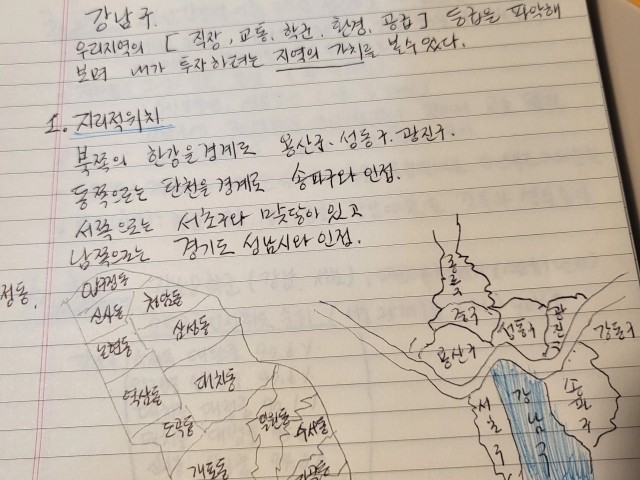 강남구.
우리지역의 [ 직장, 교통, 학군, 환경, 공급 ] 등급을 파악해
보며 내가 투자하려는 지역의 가치를 볼수있다.
1. 지리적위치
북쪽의 한강을경계로 용산구. 성동구. 광진구.
동쪽으로는 탄천을경계로 송파구와 인접.
서쪽으로는 서초구와 맞닿아 있고
남쪽으로는 경기도 성남시와 인접.
정동.
압구정동
신사동
청담동
논현동
삼성동
역삼동
대치동
도곡동
개포동
일원동
수서동
종로구
중구
용산구
성동구
광진구
강동구
서초구
강남구
송파구